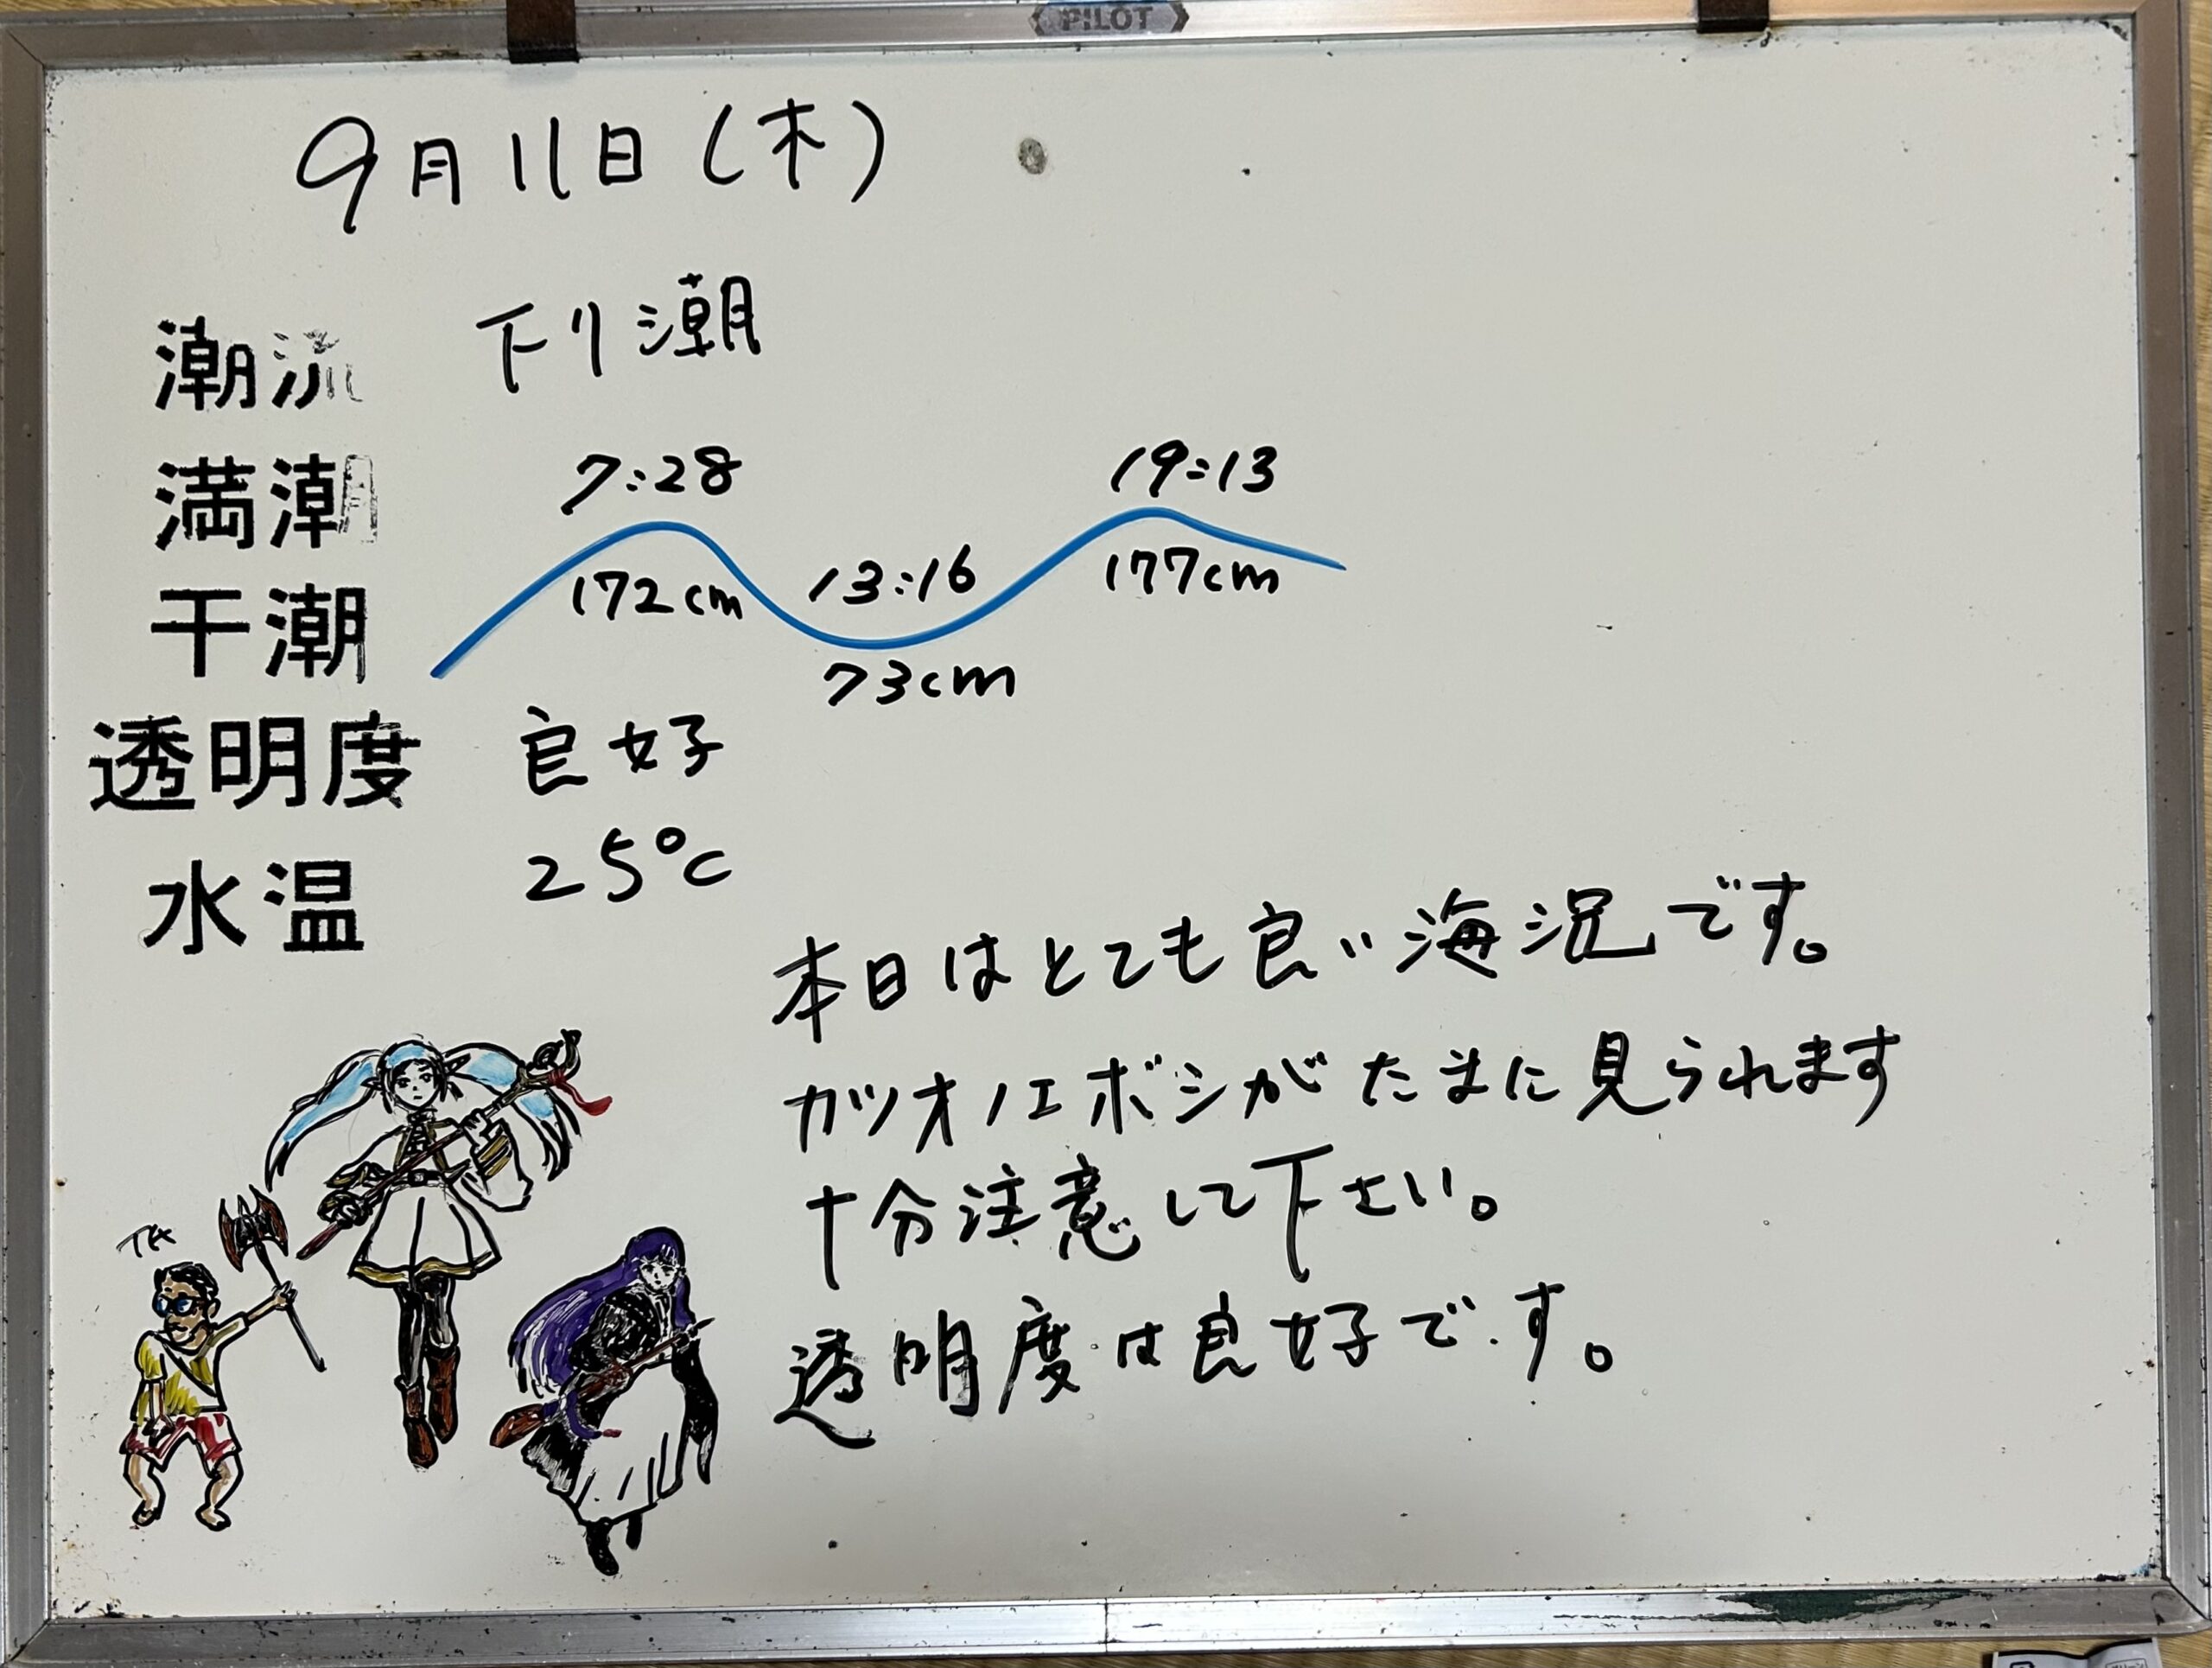 PILOT
9月11日(木)
潮流 下り潮
満潮 7:28 19:13
172cm 13:16 177cm
干潮 73cm
透明度 良好
水温 25℃
本日はとても良い海況です。
カツオノエボシがたまに見られます
十分注意して下さい。
透明度は良好です。